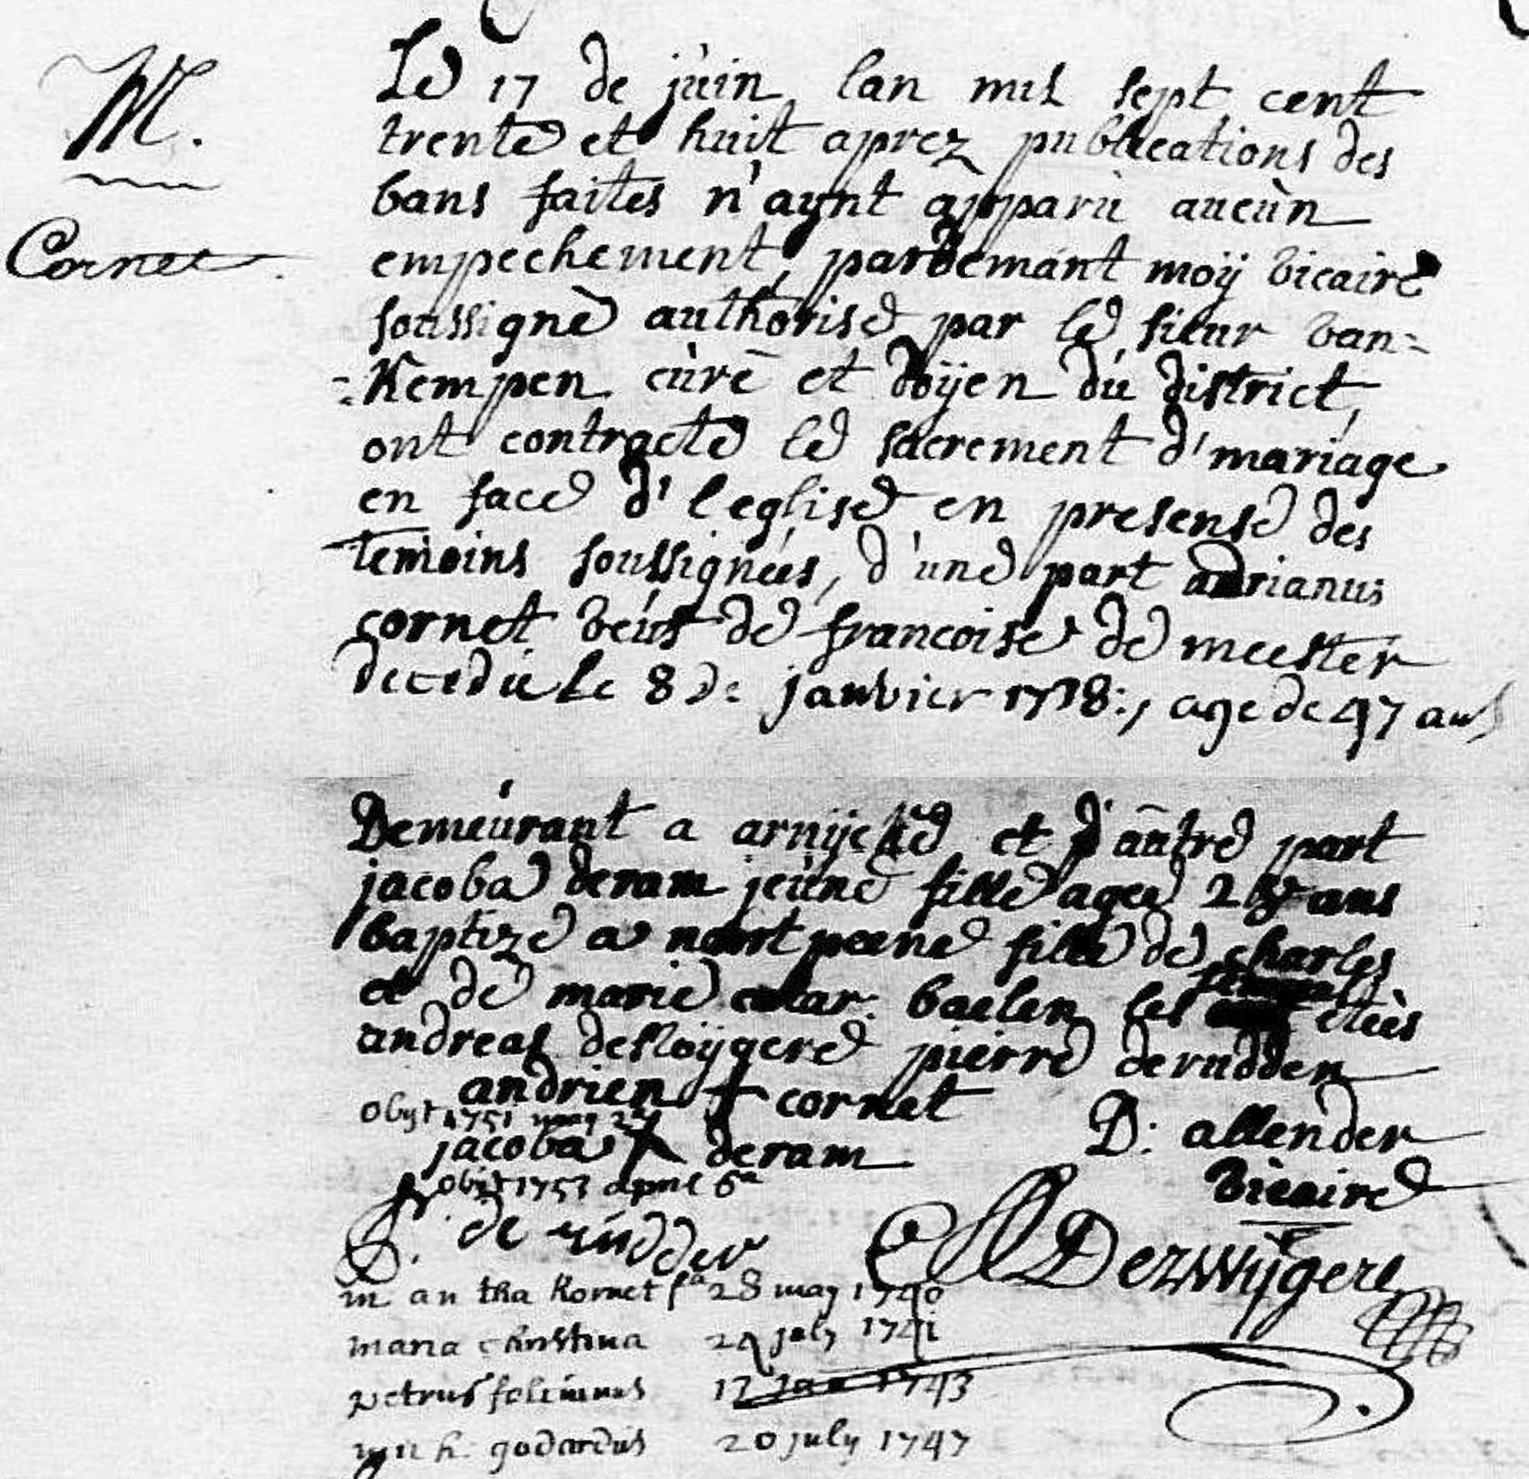 M.
Cornet.
Le 17 de juin lan mil sept cent
trente et huit aprez publications des
bans faites n'aynt apparu aucun
empechement, pardemant moÿ vicaire
soussigné authorise par le sieur van=
=Kempen curé et doÿen du district,
ont contracte le sacrement d'mariage
en face d'l'eglise en presense des
temoins soussignées, d'une part adrianus
cornet veúf de francoise de meester
decedue le 8 de janvier 1738:, age de 47 ans
Demeurant a arnijcke et d'autre part
jacoba deram jeune fille agee 28 ans
baptize a noort peene fille de charles
et de marie cathar: baelen les
andreas desloÿgere pierre derudder
andrien + cornet
obijt 1751 may
jacoba + deram
D: allender
vicaire
obijt 1753 april 6a
de rudder
Dezwijgere
kornet fa 28 may 1740
maria christina 24 july 1741
petrus 12 Jan 1743
mich. godardus 20 july 1747